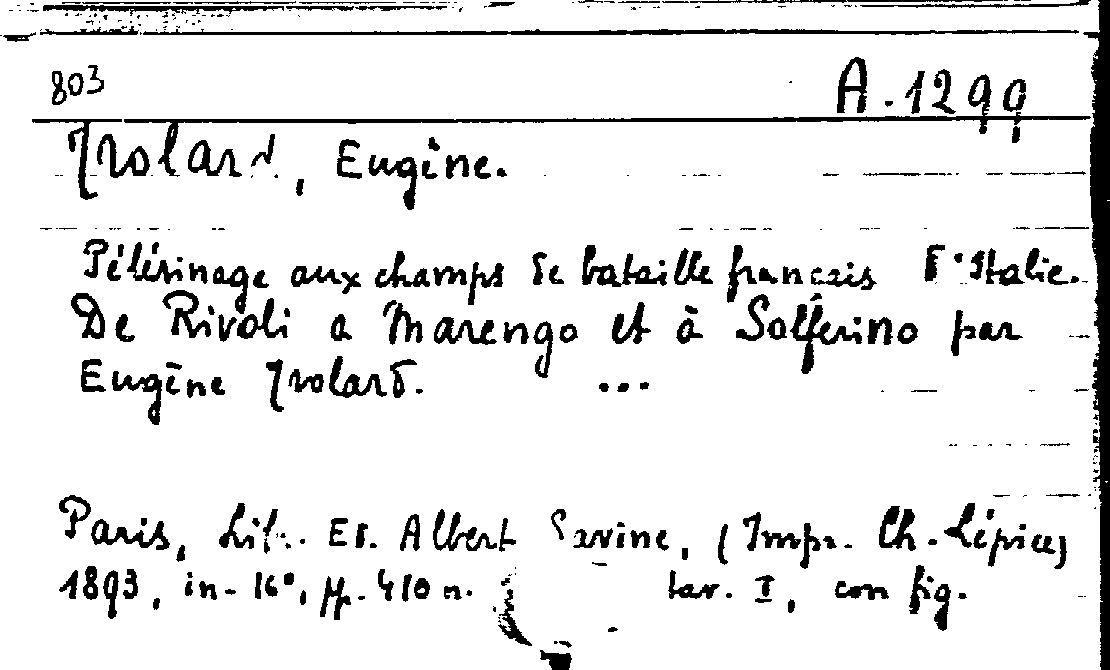 803
A. 1299
Trolard, Eugène.
Pélérinage aux champs de bataille français d'Italie.
De Rivoli a Marengo et à Solférino par
Eugène Trolard. ...
Paris, Lib. Ed. Albert Savine, (Impr. Ch. Lépice)
1893, in-16°, pp. 410 n. tav. I, con fig.